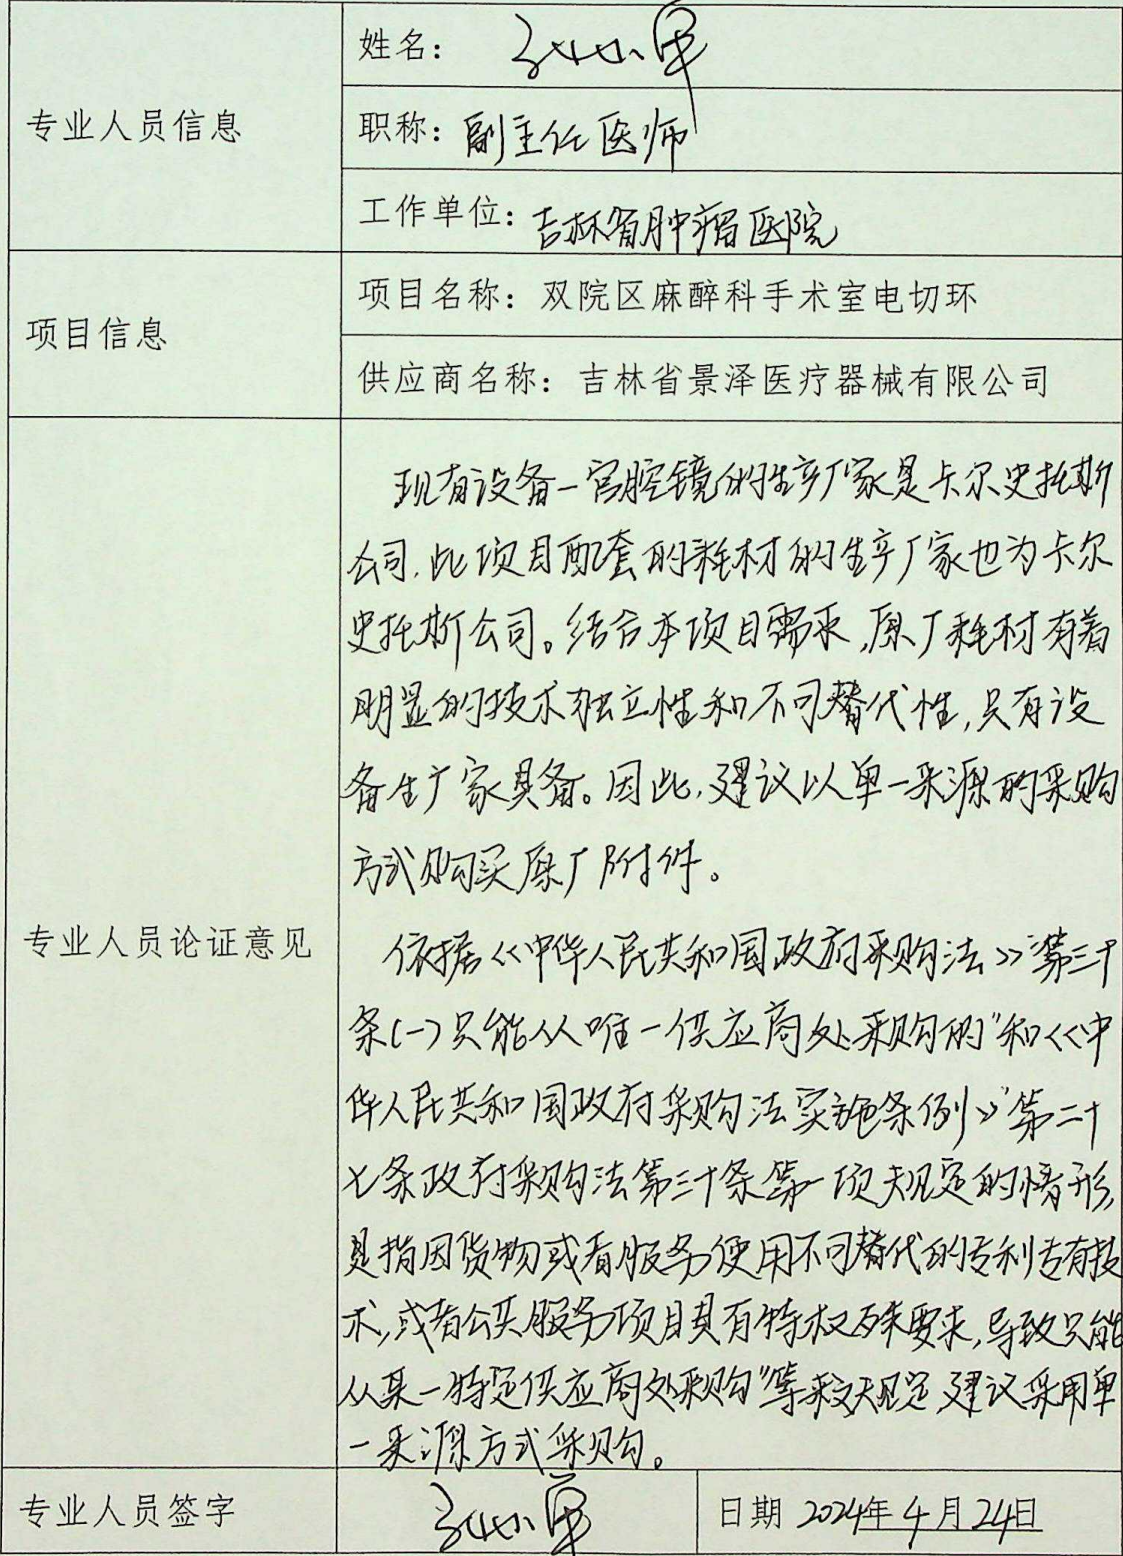 专业人员信息
姓名：
职称：副主任医师
工作单位：吉林省肿瘤医院
项目信息
项目名称：双院区麻醉科手术室电切环
供应商名称：吉林省景泽医疗器械有限公司
专业人员论证意见
现有设备一宫腔镜的生产厂家是卡尔史托斯
公司，此项目配套的耗材的生产厂家也为卡尔
史托斯公司。结合本项目需求，原厂耗材有着
明显的技术独立性和不可替代性，只有设
备生产厂家具备。因此，建议以单一来源的采购
方式购买原厂附件。
依据《中华人民共和国政府采购法》"第三十
条(一)只能从唯一供应商处采购的"和《中
华人民共和国政府采购法实施条例》"第二十
七条政府采购法第三十条第一项规定的情形，
是指因货物或者服务使用不可替代的专利专有技
术，或者公共服务项目具有特殊要求，导致只能
从某一特定供应商处采购"等相关规定，建议采用单
一来源方式采购。
专业人员签字
日期 2024年4月24日